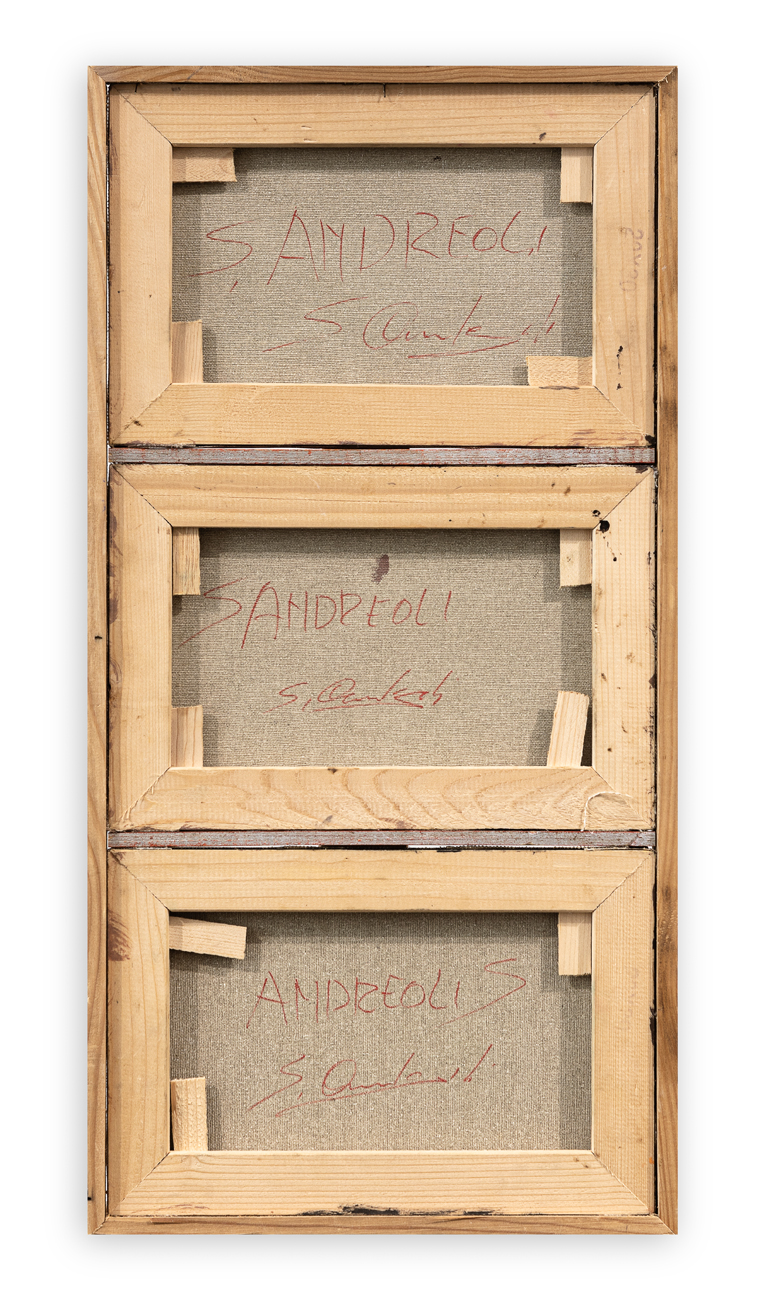 S, ANDREOLI
S Andreoli
SANDREOLI
S, Andreoli
ANDREOLI S
S, Andreoli